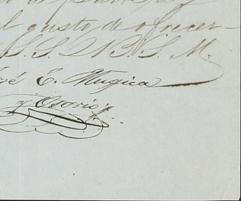 el gusto de ofrecer
S. S. Q. B. S. M.
José E. Mugica
y Osorio